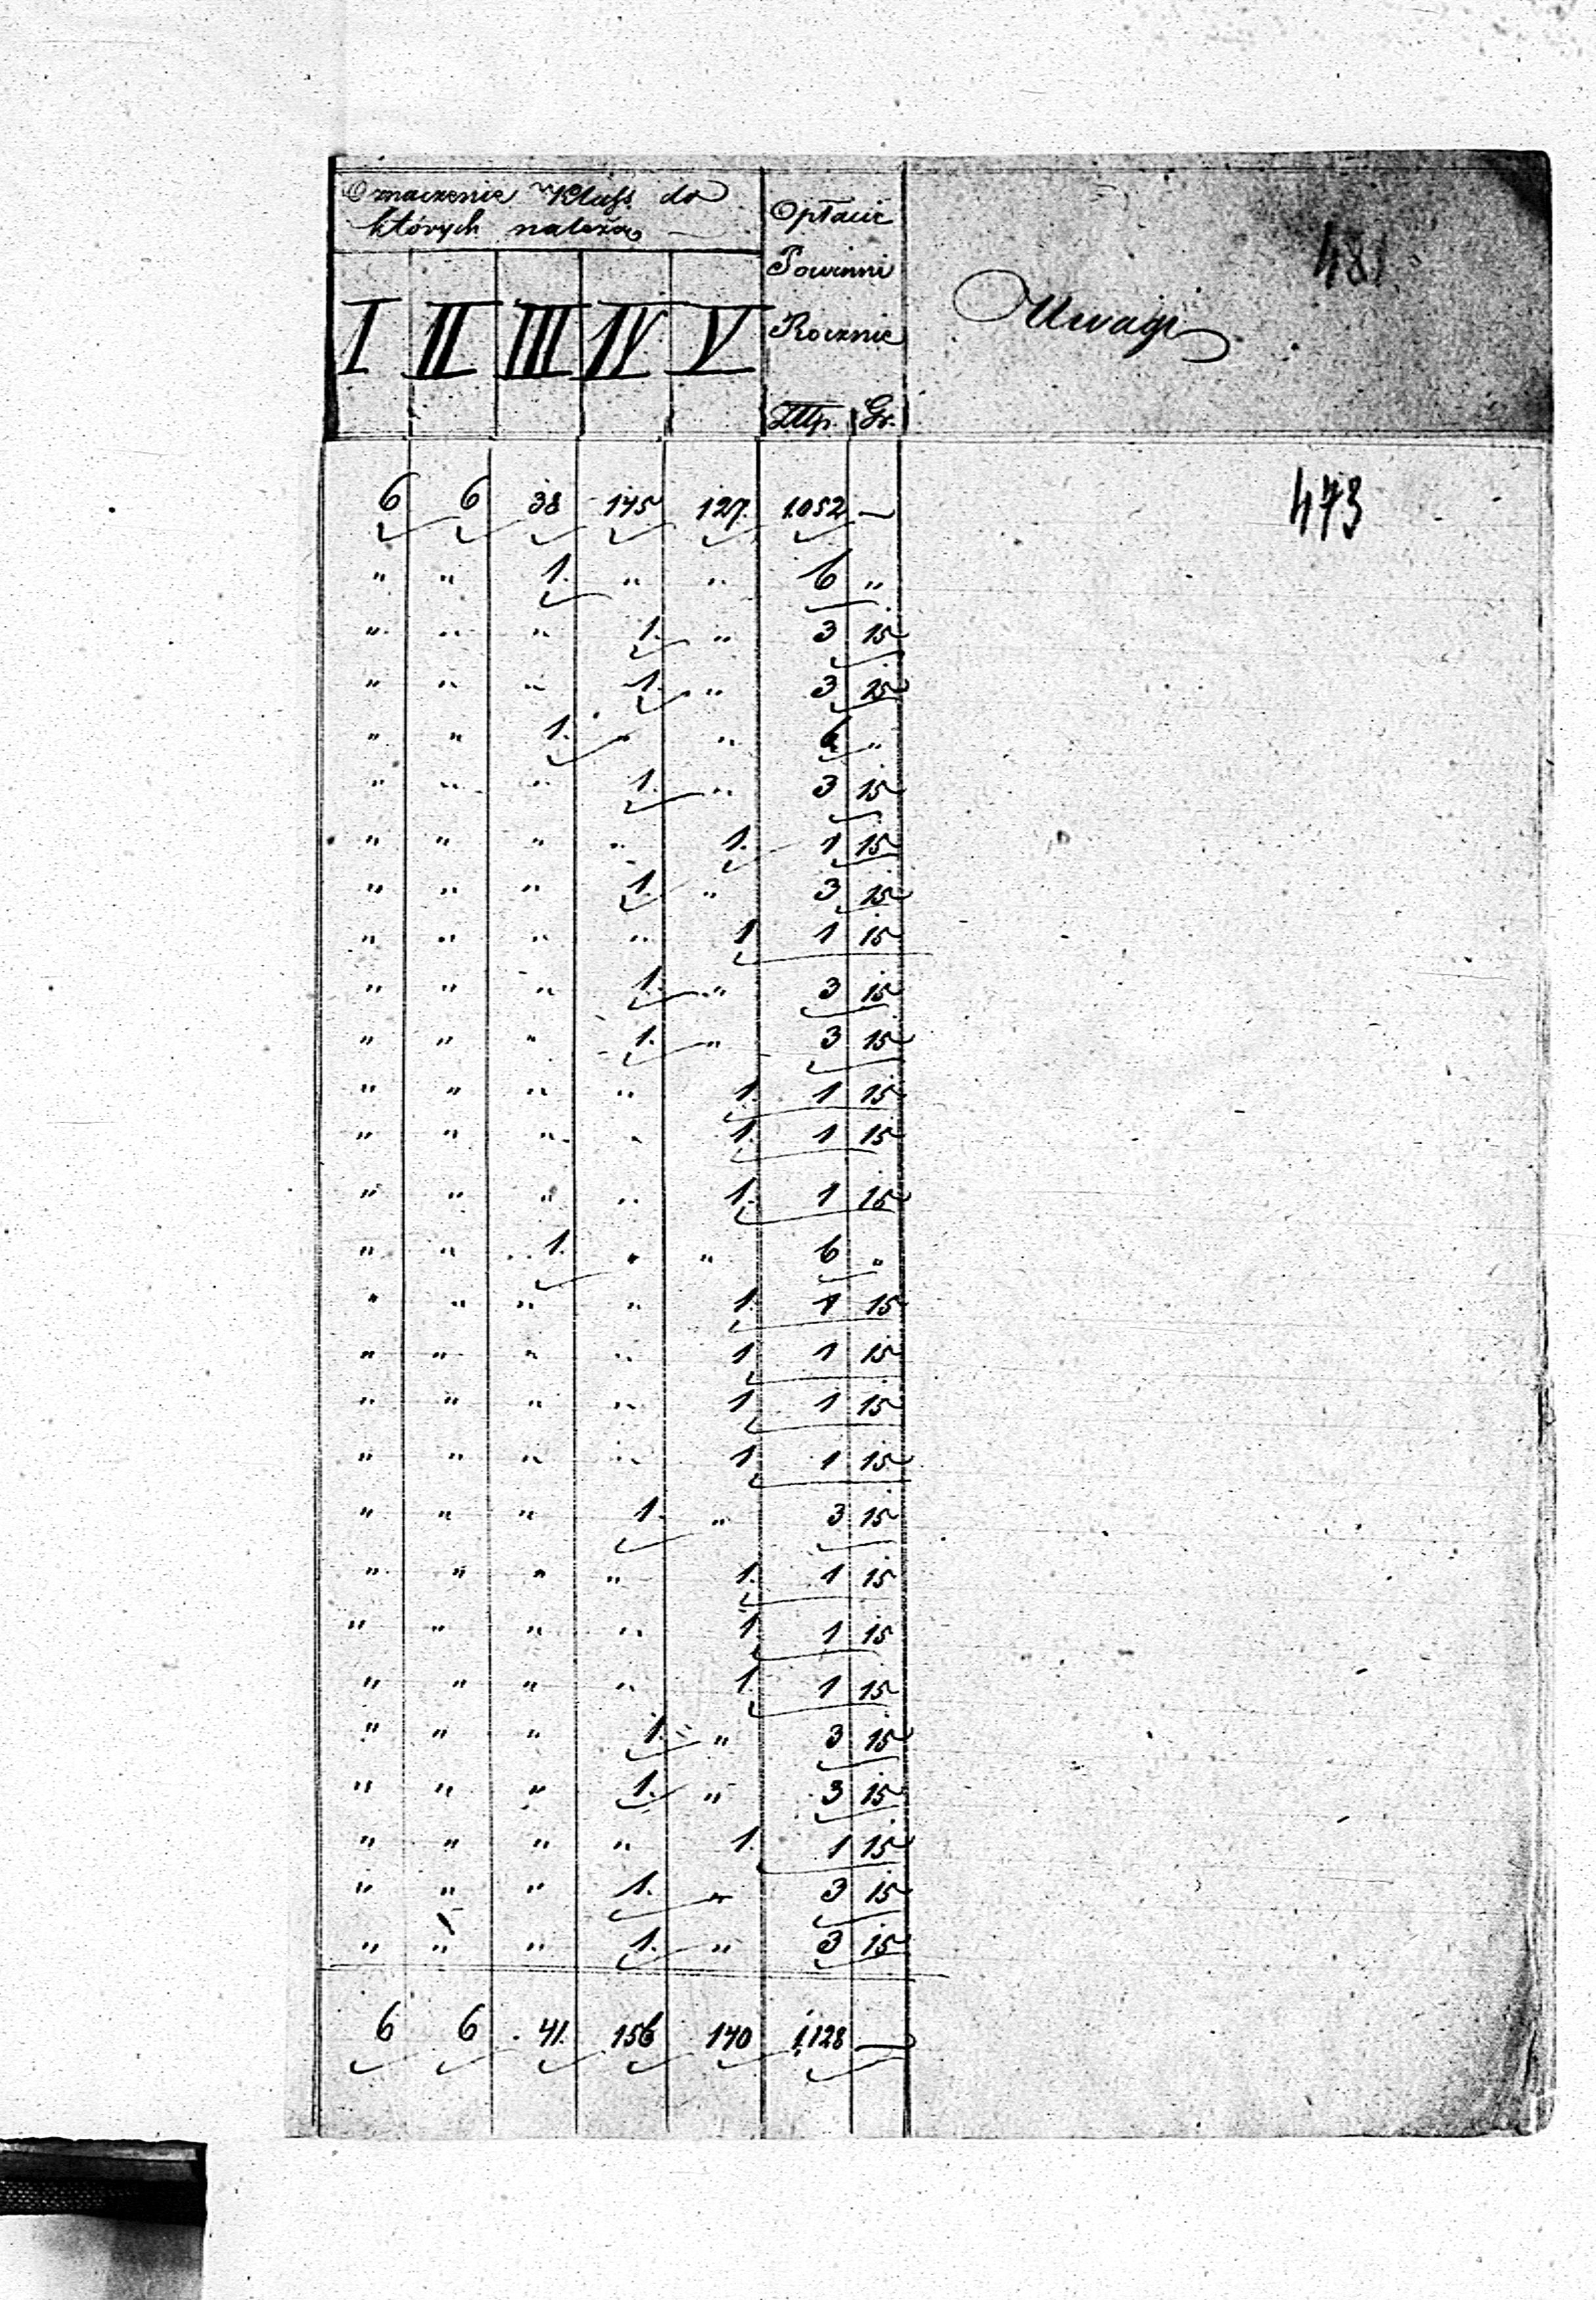 Oznaczenie Klass do
których należą
Opłacić
Powinni
Rocznie
I II III IV V
Złlp. Gr.
Uwagi
481.
473
6 6 38 145 127. 1.052 —
" " 1. " " 6 "
" " " 1. " 3 15
" " " 1. " 3 25
" " 1. " " 6 "
" " " 1. " 3 15
" " " " 1. 1 15
" " " 1. " 3 15
" " " " 1 1 15
" " " 1. " 3 15
" " " 1. " 3 15
" " " " 1. 1 15
" " " " 1. 1 15
" " " " 1. 1 15
" " 1. " " 6 "
" " " " 1. 1 15
" " " " 1 1 15
" " " " 1 1 15
" " " " 1 1 15
" " " 1. " 3 15
" " " " 1. 1 15
" " " " 1 1 15
" " " " 1. 1 15
" " " 1. " 3 15
" " " 1. " 3 15
" " " " 1. 1 15
" " " 1. " 3 15
" " " 1. " 3 15
6 6 41. 156 140 1,128 —